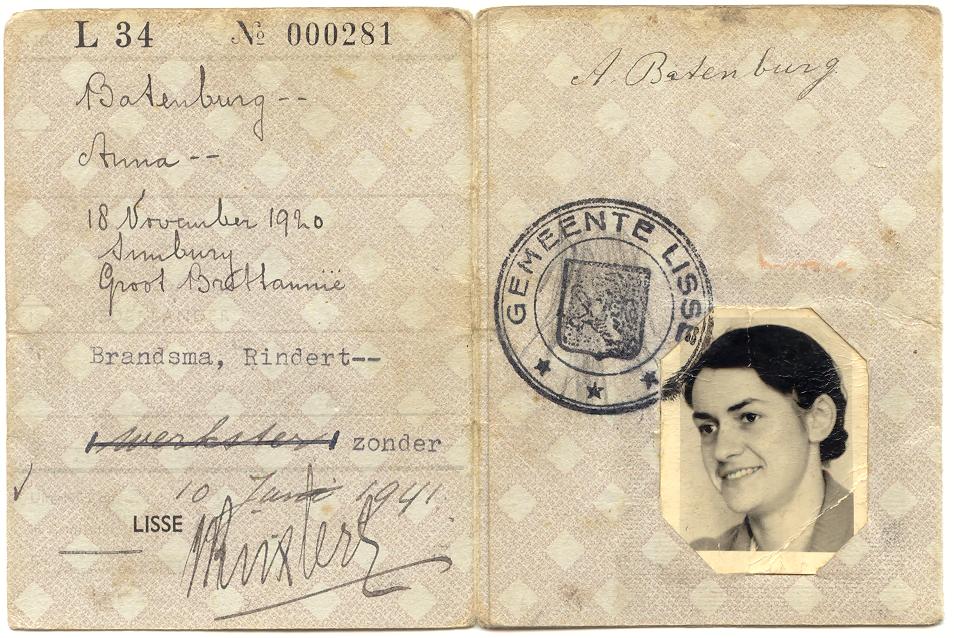 L 34 № 000281
Batenburg--
Anna--
18 November 1920
Sunbury
Groot Brittannië
Brandsma, Rindert--
werkster zonder
10 Juni 1941.
LISSE
A. Batenburg
GEMEENTE LISSE